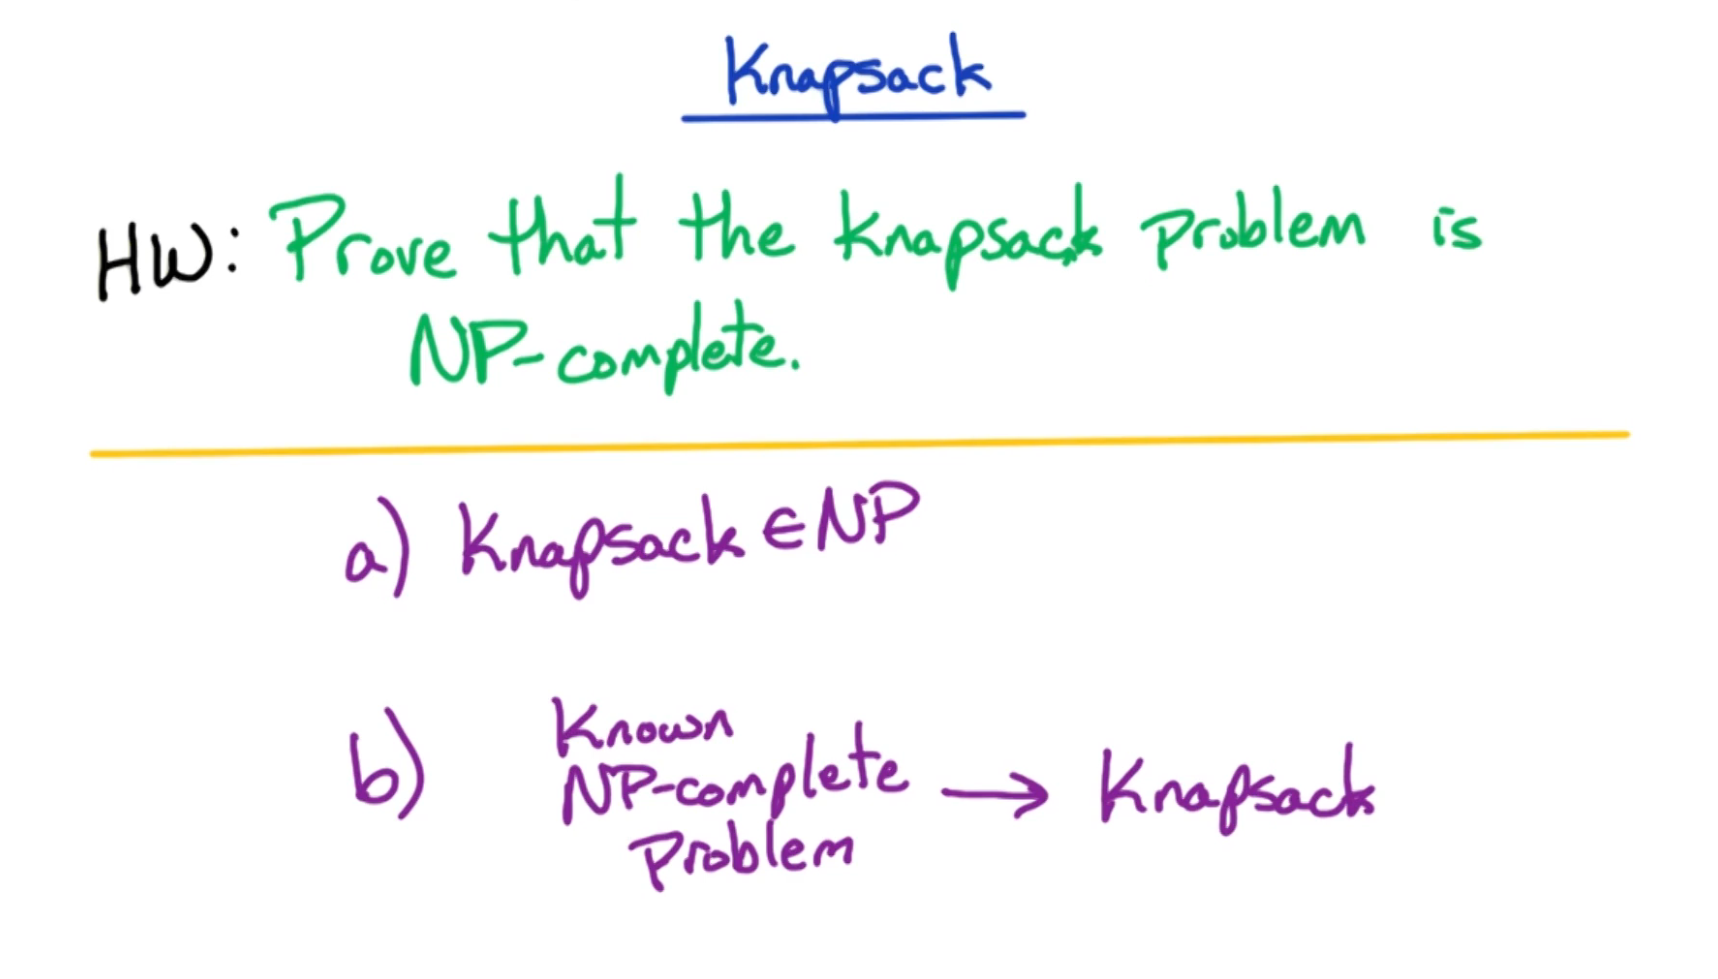 Knapsack
HW: Prove that the Knapsack problem is
NP-complete.
a) Knapsack ∈ NP
b) Known
NP-complete → Knapsack
Problem